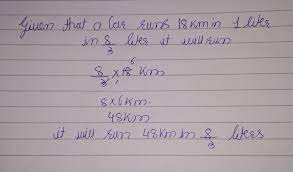 Given that a Car runs 18 km in 1 liter
in 8/3 liter it will run
8/3 × 18 6 Km
1
8 x 6 Km.
48 Km
it will run 48 Km in 8/3 liters